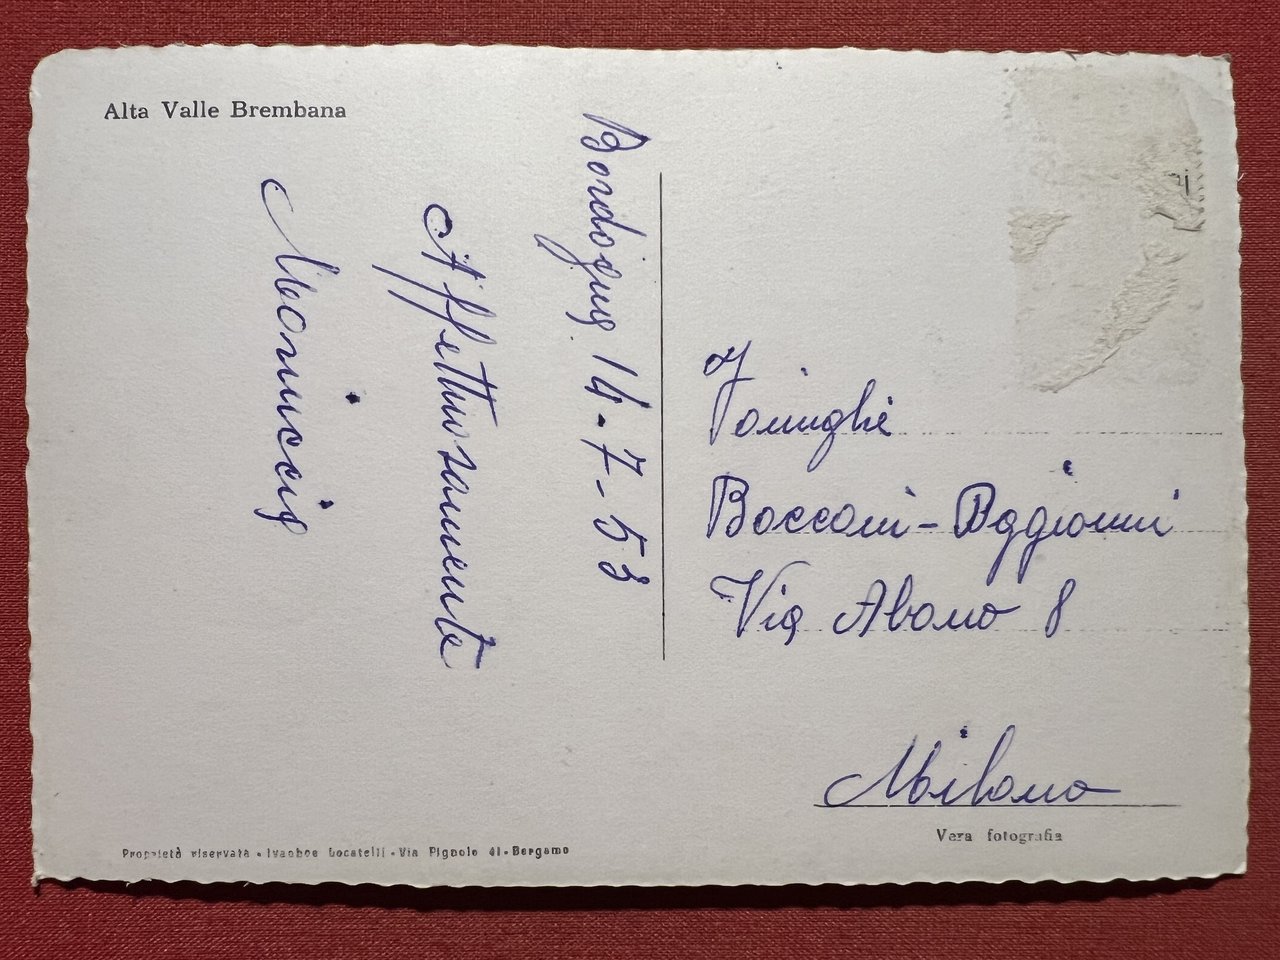 Alta Valle Brembana
Bordogna 14-7-53
Affettuosamente
Mariuccia
Famiglia
Bocconi - Aggionni
Via Abano 8
Milano
Vera fotografia
Proprietà riservata - Ivanhoe Locatelli - Via Pignolo 41 - Bergamo